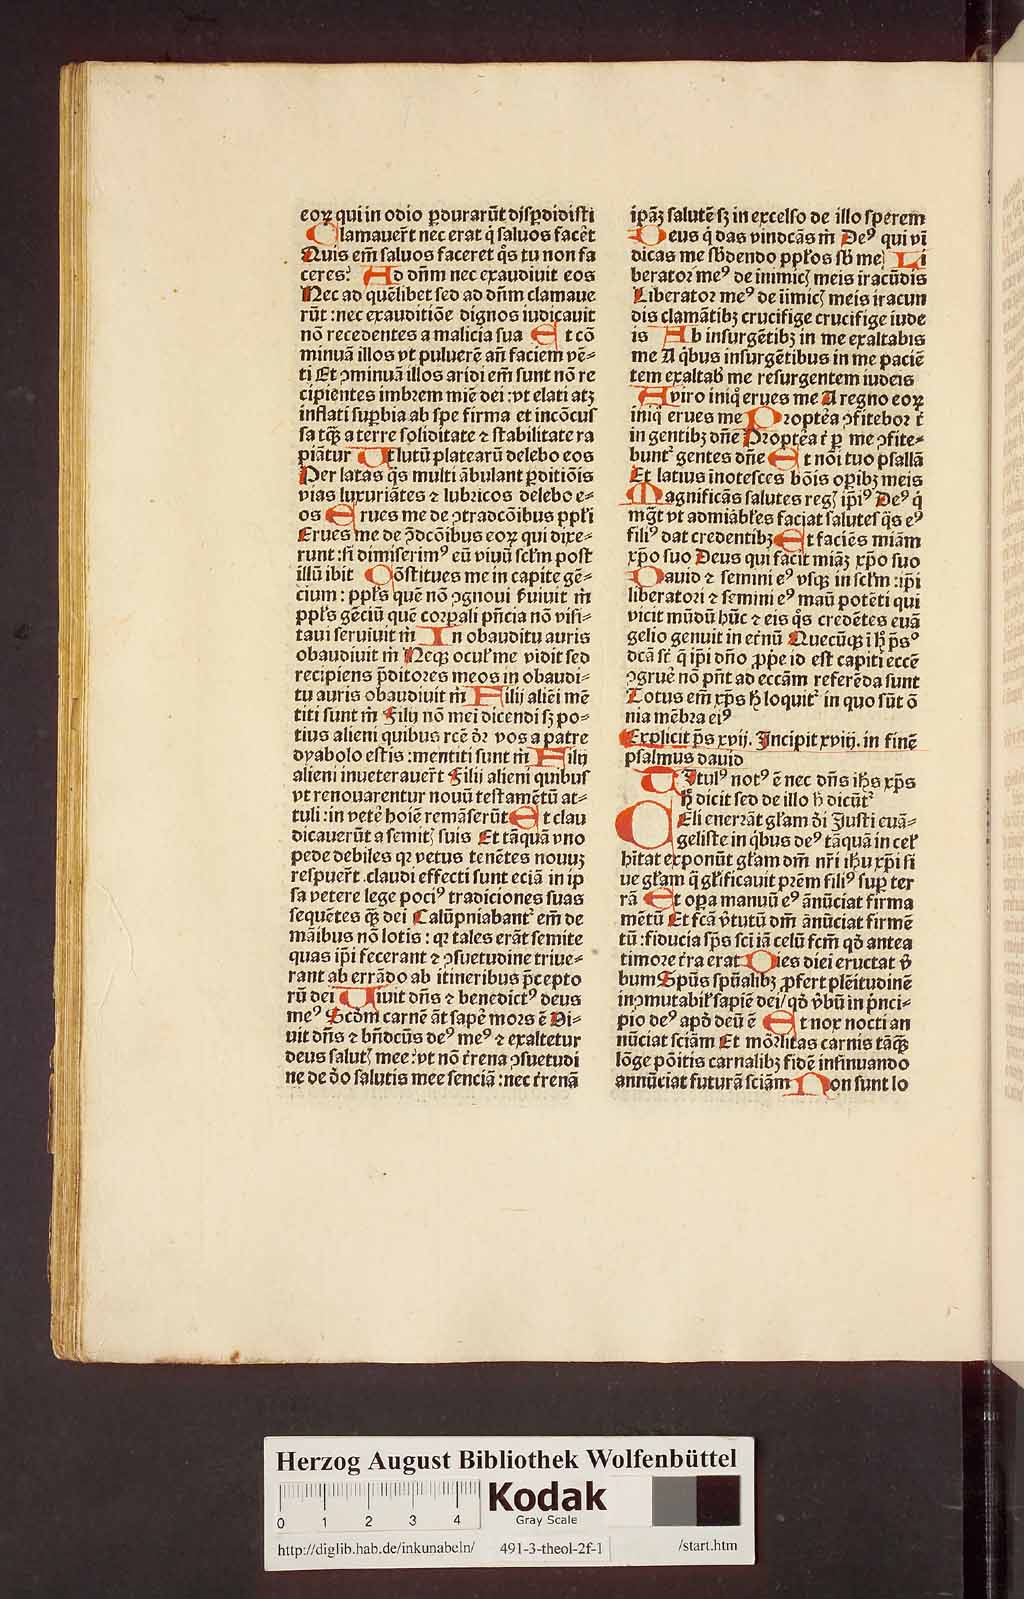 eoꝝ qui in odio ꝑdurarūt dispdidisti
Clamauer̄t nec erat q̇ saluos facēt
Quis em̄ saluos faceret q̊s tu non fa
ceres? Ad dn̄m nec exaudiuit eos
Nec ad quēlibet sed ad dn̄m clamaue
rūt : nec exauditiōe dignos iudicauit
nō recedentes a malicia sua Et cō
minuā illos vt puluerē an̄ faciem vē-
ti Et ꝯminuā illos aridi em̄ sunt nō re
cipientes imbrem mie dei : vt elati atꝫ
inflati suꝑbia ab spe firma et incōcus
sa tqꝫ a terre soliditate ⁊ stabilitate ra
piātur Ut lutū platearū delebo eos
Per latas q̄s multi ābulant ꝑditiōis
vias luxuriātes ⁊ lubricos delebo e-
os Erues me de ꝯtradcōibus ppl̄i
Erues me de ꝯ̄dcōibus eoꝝ qui dixe-
runt : si dimiserimꝰ eū viuū scl̄m post
illū ibit Cōstitues me in capite gē-
cium : ppl̄s quē nō ꝯgnoui s̄uiuit m̄
ppl̄s gēciū quē corꝑali pn̄cia nō visi-
taui seruiuit m̄ In obauditu auris
obaudiuit m̄ Neqꝫ ocul̄ me vidit sed
recipiens ꝑditores meos in obaudi-
tu auris obaudiuit m̄ Filij aliei mē
titi sunt m̄ Filij nō mei dicendi sꝫ po-
tius alieni quibus rcē dr̄ vos a patre
dyabolo estis : mentiti sunt m̄ Filij
alieni inueterauer̄t Filii alieni quibus
vt renouarentur nouū testamētū at-
tuli : in veterē hoiē remāserūt Et clau
dicauerūt a semitꝫ suis Et tāquā vno
pede debiles qꝛ vetus tenētes nouuꝫ
respuer̄t .claudi effecti sunt eciā in ip
sa vetere lege pociꝰ tradiciones suas
sequētes qꝫ dei Calūpniabant᷑ em̄ de
māibus nō lotis : qꝛ tales erāt semite
quas ip̄i fecerant ⁊ ꝯsuetudine triue-
rant ab errādo ab itineribus p̄cepto
rū dei Uiuit dn̄s ⁊ benedictꝰ deus
meꝰ Scd̄m carnē āt saꝑe mors ē Vi-
uit dn̄s ⁊ bn̄dcūs deꝰ meꝰ ⁊ exaltetur
deus salutꝫ mee : vt nō t̄rena ꝯsuetudi
ne de d̄o salutis mee senciā : nec t̄renā
ip̄aꝫ salutē sꝫ in excelso de illo sperem
Deus q̇ das vindcās m̄ Deꝰ qui vī
dicas me sb̄dendo ppl̄os sb̄ me Li
berator meꝰ de inimicꝫ meis iracūdis
Liberator meꝰ de iimicꝫ meis iracun
dis clamātibꝫ crucifige crucifige iude
is Ab insurgētibꝫ in me exaltabis
me A q̇bus insurgētibus in me paciē
tem exaltab̄ me resurgentem iudeis
A viro iniq̇ erues me A regno eoꝝ
iniq̇ erues me Propteᷓa ꝯfitebor t̄
in gentibꝫ dn̄e Propteᷓa t̄ ꝑ me ꝯfite-
bunt᷑ gentes dn̄e Et nōi tuo psallā
Et latius īnotesces bōis oꝑibꝫ meis
Magnificās salutes regꝫ ip̄iꝰ Deꝰ q̇
mg̅t vt admiabl̄es faciat salutes q̄s eꝰ
filiꝰ dat credentibꝫ Et faciēs miām
xp̄o suo Deus qui facit miāꝫ xp̄o suo
Dauid ⁊ semini eꝰ vsqꝫ in scl̄m : ip̄i
liberatori ⁊ semini eꝰ mau̅ potēti qui
vicit mūdū hūc ⁊ eis q̊s credētes euā
gelio genuit in et̄nū Quecūqꝫ i ħ p̄sꝰ
dcā st̄ q̇ ip̄i dn̄o ꝓpe id est capiti eccē
ꝯgruē nō pn̄t ad eccām referēda sunt
Totus em̄ xp̄s ħ loquit᷑ in quo sūt ō
nia mēbra eiꝰ
Explicit p̄s xvij. Incipit xviij. in finē
psalmus dauid
Titulꝰ notꝰ ē nec dn̄s ih̄s xp̄s
ħ dicit sed de illo ħ dicūt᷑
Celi enerrāt gl̄am d̄i Iusti euā-
geliste in q̇bus deꝰ tāquā in cel̄
hītat exponūt gl̄am dn̄i nr̄i ih̄u xp̄i si
ue gl̄am q̄ gl̄ificauit pr̄em filiꝰ suꝑ ter
rā Et oꝑa manuū eꝰ ānūciat firma
mētū Et fcā v̄tutū dn̄i ānūciat firmē
tū : fiducia sp̄s sci iā celū fcm̄ qd̄ antea
timore t̄ra erat Dies diei eructat v̄
bum Spūs sp̄ualibꝫ ꝓfert plēitudinē
inꝯmutabil̄ sapiē dei / qd̄ v̄bū in p̄nci-
pio deꝰ apd̄ deū ē Et nox nocti an
nūciat sciām Et mōrlitas carnis tāqꝫ
lōge pōitis carnalibꝫ fidē insinuando
annūciat futurā sciām Non sunt lo
Herzog August Bibliothek Wolfenbüttel
0 1 2 3 4
Kodak
Gray Scale
http://diglib.hab.de/inkunabeln/ 491-3-theol-2f-1 /start.htm